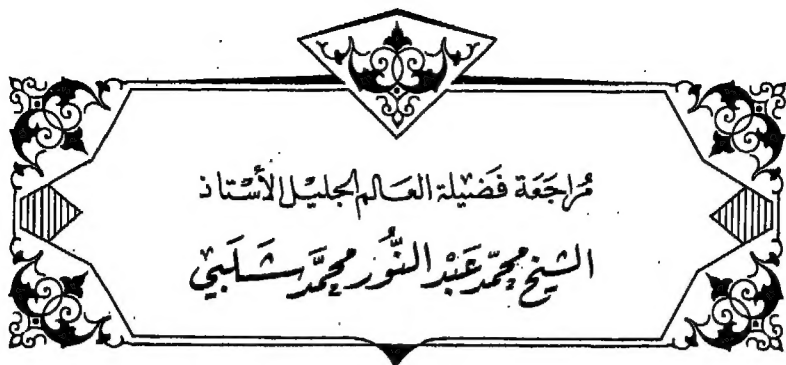 مُرَاجَعَة فَضِيلَة العَالم الجليْل الأسْتاذ
الشيخ محمّد عَبْد النُّور محمَّد شَلَبيْ